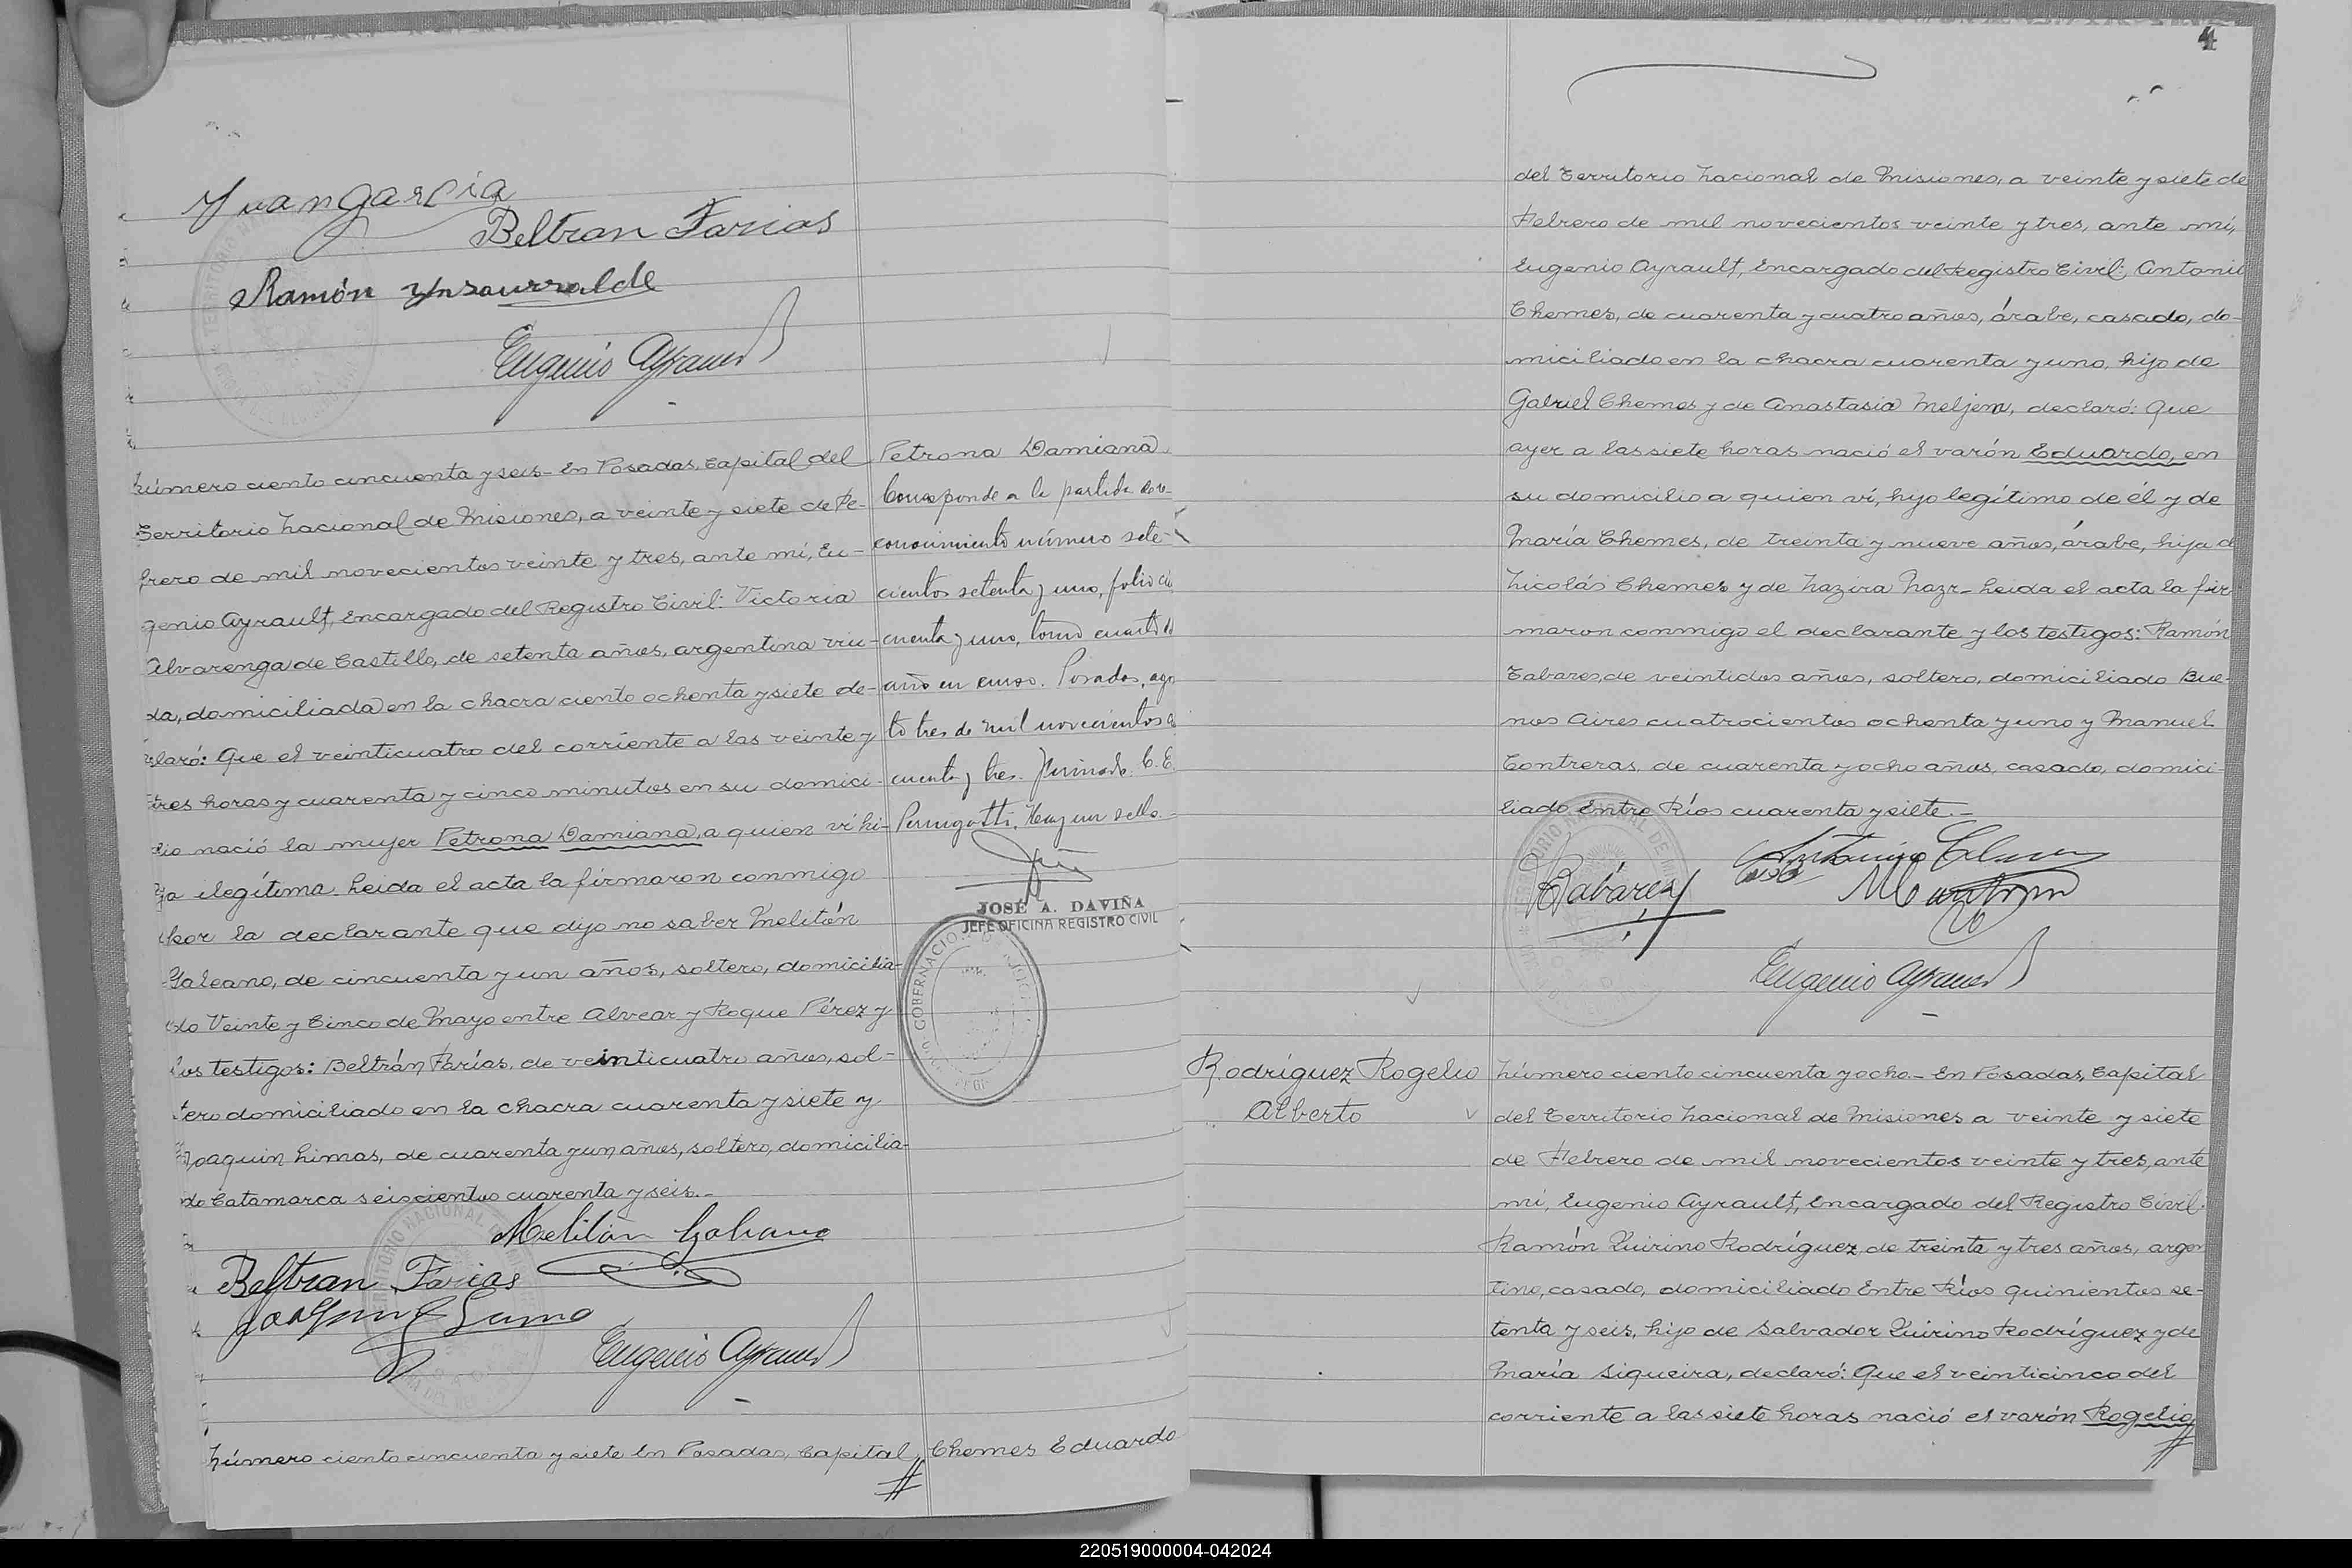 Juan Garcia
Beltran Farias
Ramón Ynsaurralde
Eugenio Ayrault
Número ciento cincuenta y seis - En Posadas, Capital del
Territorio Nacional de Misiones, a veinte y siete de Fe-
brero de mil novecientos veinte y tres, ante mí, Eu-
genio Ayrault, Encargado del Registro Civil: Victoria
Alvarenga de Castillo, de setenta años, argentina viu-
da, domiciliada en la chacra ciento ochenta y siete de-
claró: Que el veinticuatro del corriente a las veinte y
tres horas y cuarenta y cinco minutos en su domici-
lio nació la mujer Petrona Damiana, a quien vi hi-
ja ilegítima. Leida el acta la firmaron conmigo
por la declarante que dijo no saber Melitón
Galeano, de cincuenta y un años, soltero, domicilia-
do Veinte y Cinco de Mayo entre Alvear y Roque Pérez y
los testigos: Beltrán Farías, de veinticuatro años, sol-
tero domiciliado en la chacra cuarenta y siete y
Joaquin Limas, de cuarenta y un años, soltero, domicilia-
do Catamarca seiscientos cuarenta y seis.-
Melitón Galeano
Beltran Farias
Eugenio Ayrault
Número ciento cincuenta y siete En Posadas, Capital
Petrona Damiana
Corresponde a la partida de re-
conocimiento número sete-
cientos setenta y uno, folio cin
cuenta y uno, tomo cuarto d
año en curso. Posadas, ago
to tres de mil novecientos c
cuenta y tres. Firmado. C. E.
Hay un sello.-
JOSÉ A. DAVIÑA
JEFE OFICINA REGISTRO CIVIL
Chemes Eduardo
4
del Territorio Nacional de Misiones, a veinte y siete de
Febrero de mil novecientos veinte y tres, ante mí,
Eugenio Ayrault, Encargado del Registro Civil: Antonio
Chemes, de cuarenta y cuatro años, árabe, casado, do-
miciliado en la chacra cuarenta y uno, hijo de
Gabriel Chemes y de Anastasia Meljem, declaró: Que
ayer a las siete horas nació el varón Eduardo, en
su domicilio a quien ví, hijo legítimo de él y de
María Chemes, de treinta y nueve años, árabe, hija d
Nicolás Chemes y de Nazira Nazr- Leida el acta la fir
maron conmigo el declarante y los testigos: Ramón
Tabares, de veintidos años, soltero, domiciliado Bue-
nos Aires cuatrocientos ochenta y uno y Manuel
Contreras, de cuarenta y ocho años, casado, domici-
liado Entre Ríos cuarenta y siete.-
Tabares
Eugenio Ayrault
Rodríguez Rogelio
Alberto
Número ciento cincuenta y ocho.- En Posadas, Capital
del Territorio Nacional de Misiones a veinte y siete
de Febrero de mil novecientos veinte y tres, ante
mí, Eugenio Ayrault, Encargado del Registro Civil:
Ramón Quirino Rodríguez, de treinta y tres años, argen
tino, casado, domiciliado Entre Ríos quinientos se-
tenta y seis, hijo de Salvador Quirino Rodríguez y de
María Siqueira, declaró: Que el veinticinco del
corriente a las siete horas nació el varón Rogelio
220519000004-042024